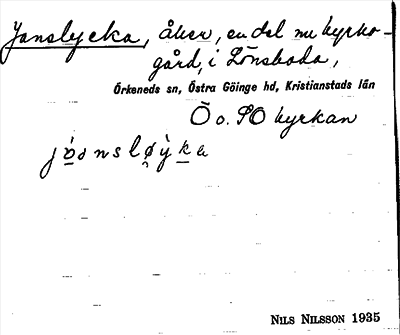 Janslycka, åker, en del nu kyrko-
gård, i Lönsboda,
Örkeneds sn, Östra Göinge hd, Kristianstads län
Ö o. SO kyrkan
jònsløỳka
NILS NILSSON 1935